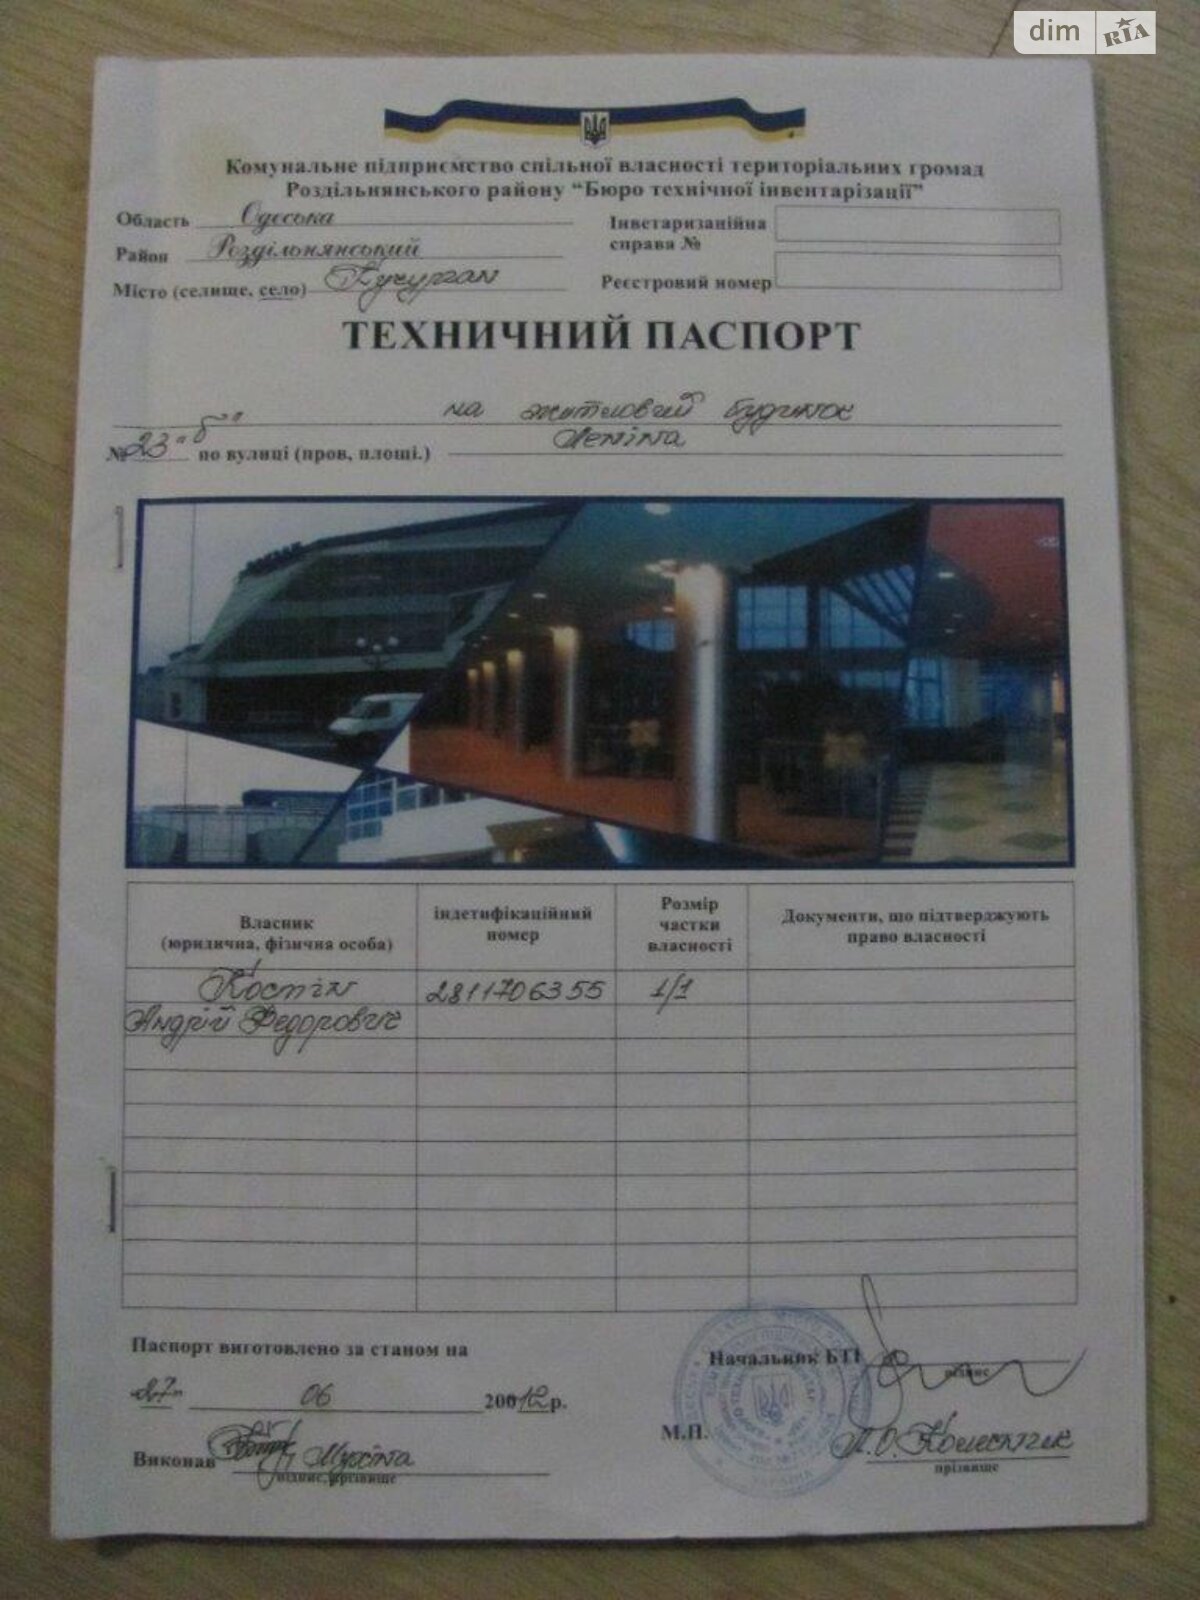 dim RIA
Комунальне підприємство спільної власності територіальних громад
Роздільнянського району “Бюро технічної інвентарізації”
Область Одеська
Район Роздільнянський
Місто (селище, село) Кучурган
Інветаризаційна
справа №
Реєстровий номер
ТЕХНИЧНИЙ ПАСПОРТ
на житловий будинок
№ 23 "б" по вулиці (пров, площі.) Леніна
Власник
(юридична, фізична особа)
індетифікаційний
номер
Розмір
частки
власності
Документи, що підтверджують
право власності
Костін 2811706355 1/1
Андрій Федорович
Паспорт виготовлено за станом на
"27" 06 2012р.
Виконав Мухіна
підпис, прізвище
Начальник БТІ
підпис
М.П.
прізвище